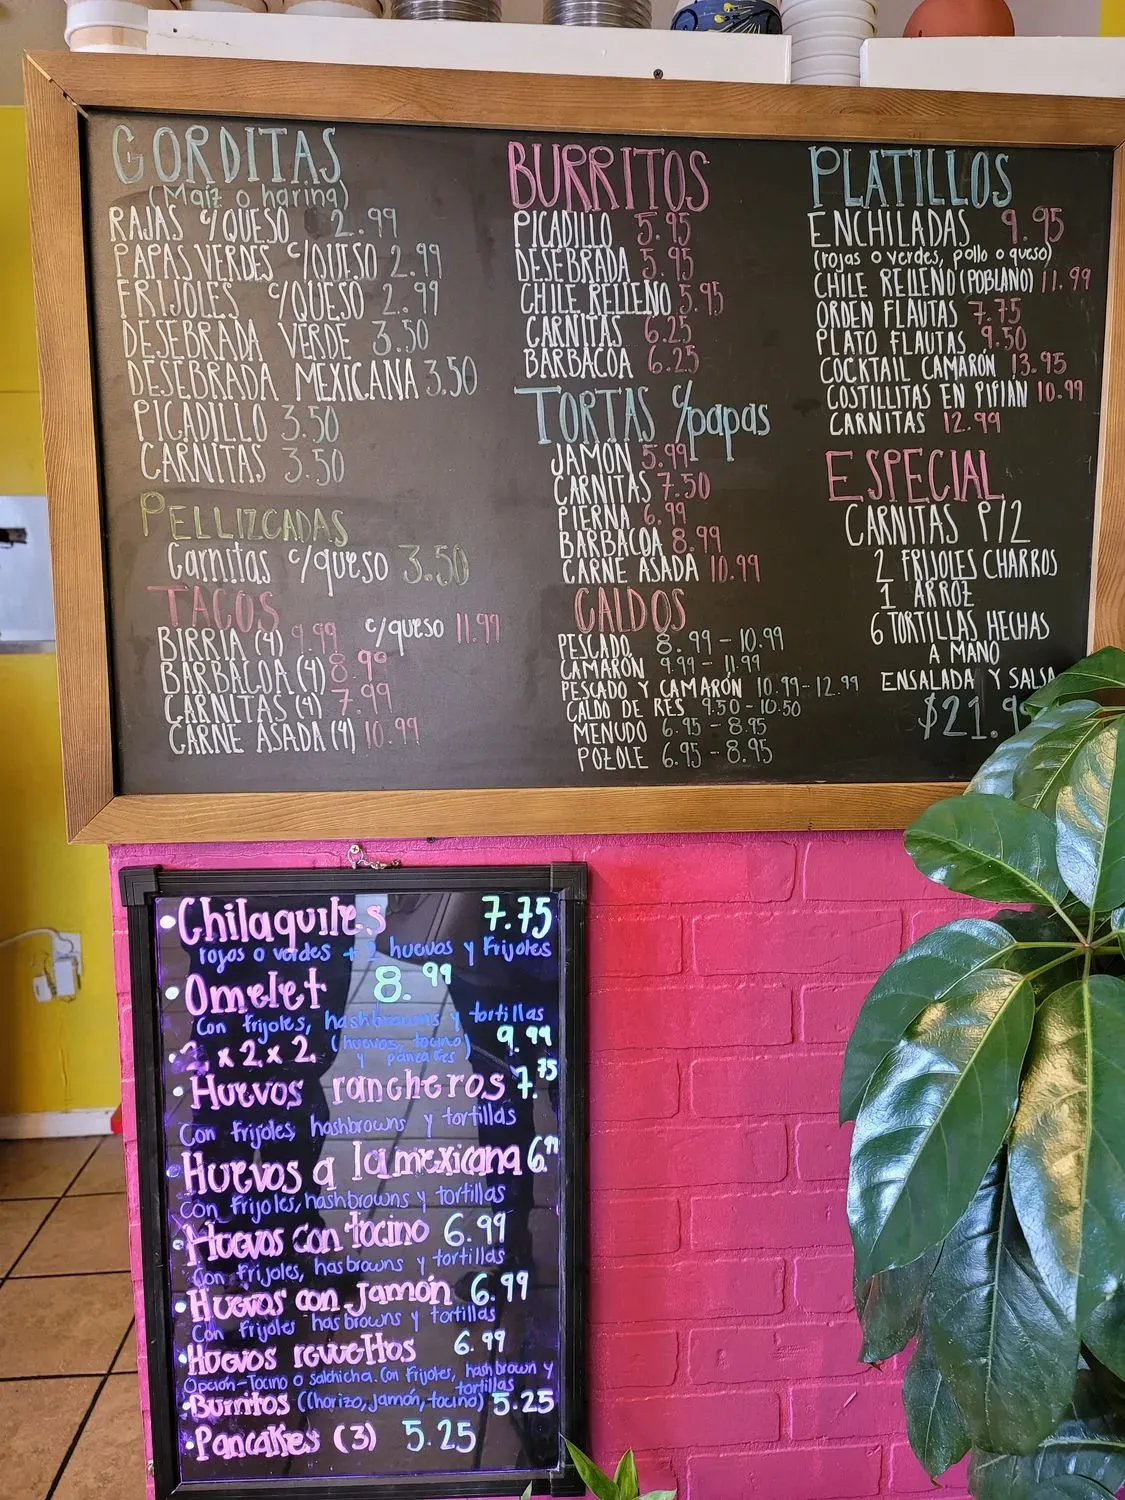 GORDITAS
(Maiz o harina)
RAJAS c/QUESO 2.99
PAPAS VERDES c/QUESO 2.99
FRIJOLES c/QUESO 2.99
DESEBRADA VERDE 3.50
DESEBRADA MEXICANA 3.50
PICADILLO 3.50
CARNITAS 3.50
PELLIZCADAS
Carnitas c/queso 3.50
TACOS
BIRRIA (4) 9.99 c/queso 11.99
BARBACOA (4) 8.99
CARNITAS (4) 7.99
CARNE ASADA (4) 10.99
BURRITOS
PICADILLO 5.95
DESEBRADA 5.95
CHILE RELLENO 5.95
CARNITAS 6.25
BARBACOA 6.25
TORTAS c/papas
JAMÓN 5.99
CARNITAS 7.50
PIERNA 6.99
BARBACOA 8.99
CARNE ASADA 10.99
CALDOS
PESCADO 8.99 - 10.99
CAMARÓN 9.99 - 11.99
PESCADO Y CAMARÓN 10.99-12.99
CALDO DE RES 9.50 - 10.50
MENUDO 6.95 - 8.95
POZOLE 6.95 - 8.95
PLATILLOS
ENCHILADAS 9.95
(rojas o verdes, pollo o queso)
CHILE RELLENO (POBLANO) 11.99
ORDEN FLAUTAS 7.75
PLATO FLAUTAS 9.50
COCKTAIL CAMARÓN 13.95
COSTILLITAS EN PIPIAN 10.99
CARNITAS 12.99
ESPECIAL
CARNITAS P/2
2 FRIJOLES CHARROS
1 ARROZ
6 TORTILLAS HECHAS
A MANO
ENSALADA Y SALSA
$21.9
• Chilaquiles 7.75
rojos o verdes + 2 huevos y frijoles
• Omelet 8.99
Con frijoles, hashbrowns y tortillas
• 2 x 2 x 2 (huevos, tocino y pancakes) 9.99
• Huevos rancheros 7.75
Con frijoles, hashbrowns y tortillas
Huevos a la mexicana 6.99
Con frijoles, hashbrowns y tortillas
• Huevos con tocino 6.99
Con frijoles, hasbrowns y tortillas
• Huevos con jamón 6.99
Con frijoles hasbrowns y tortillas
• Huevos revueltos 6.99
Opción-Tocino o salchicha. Con frijoles, hashbrown y
tortillas
• Burritos (Chorizo, jamón, tocino) 5.25
• Pancakes (3) 5.25